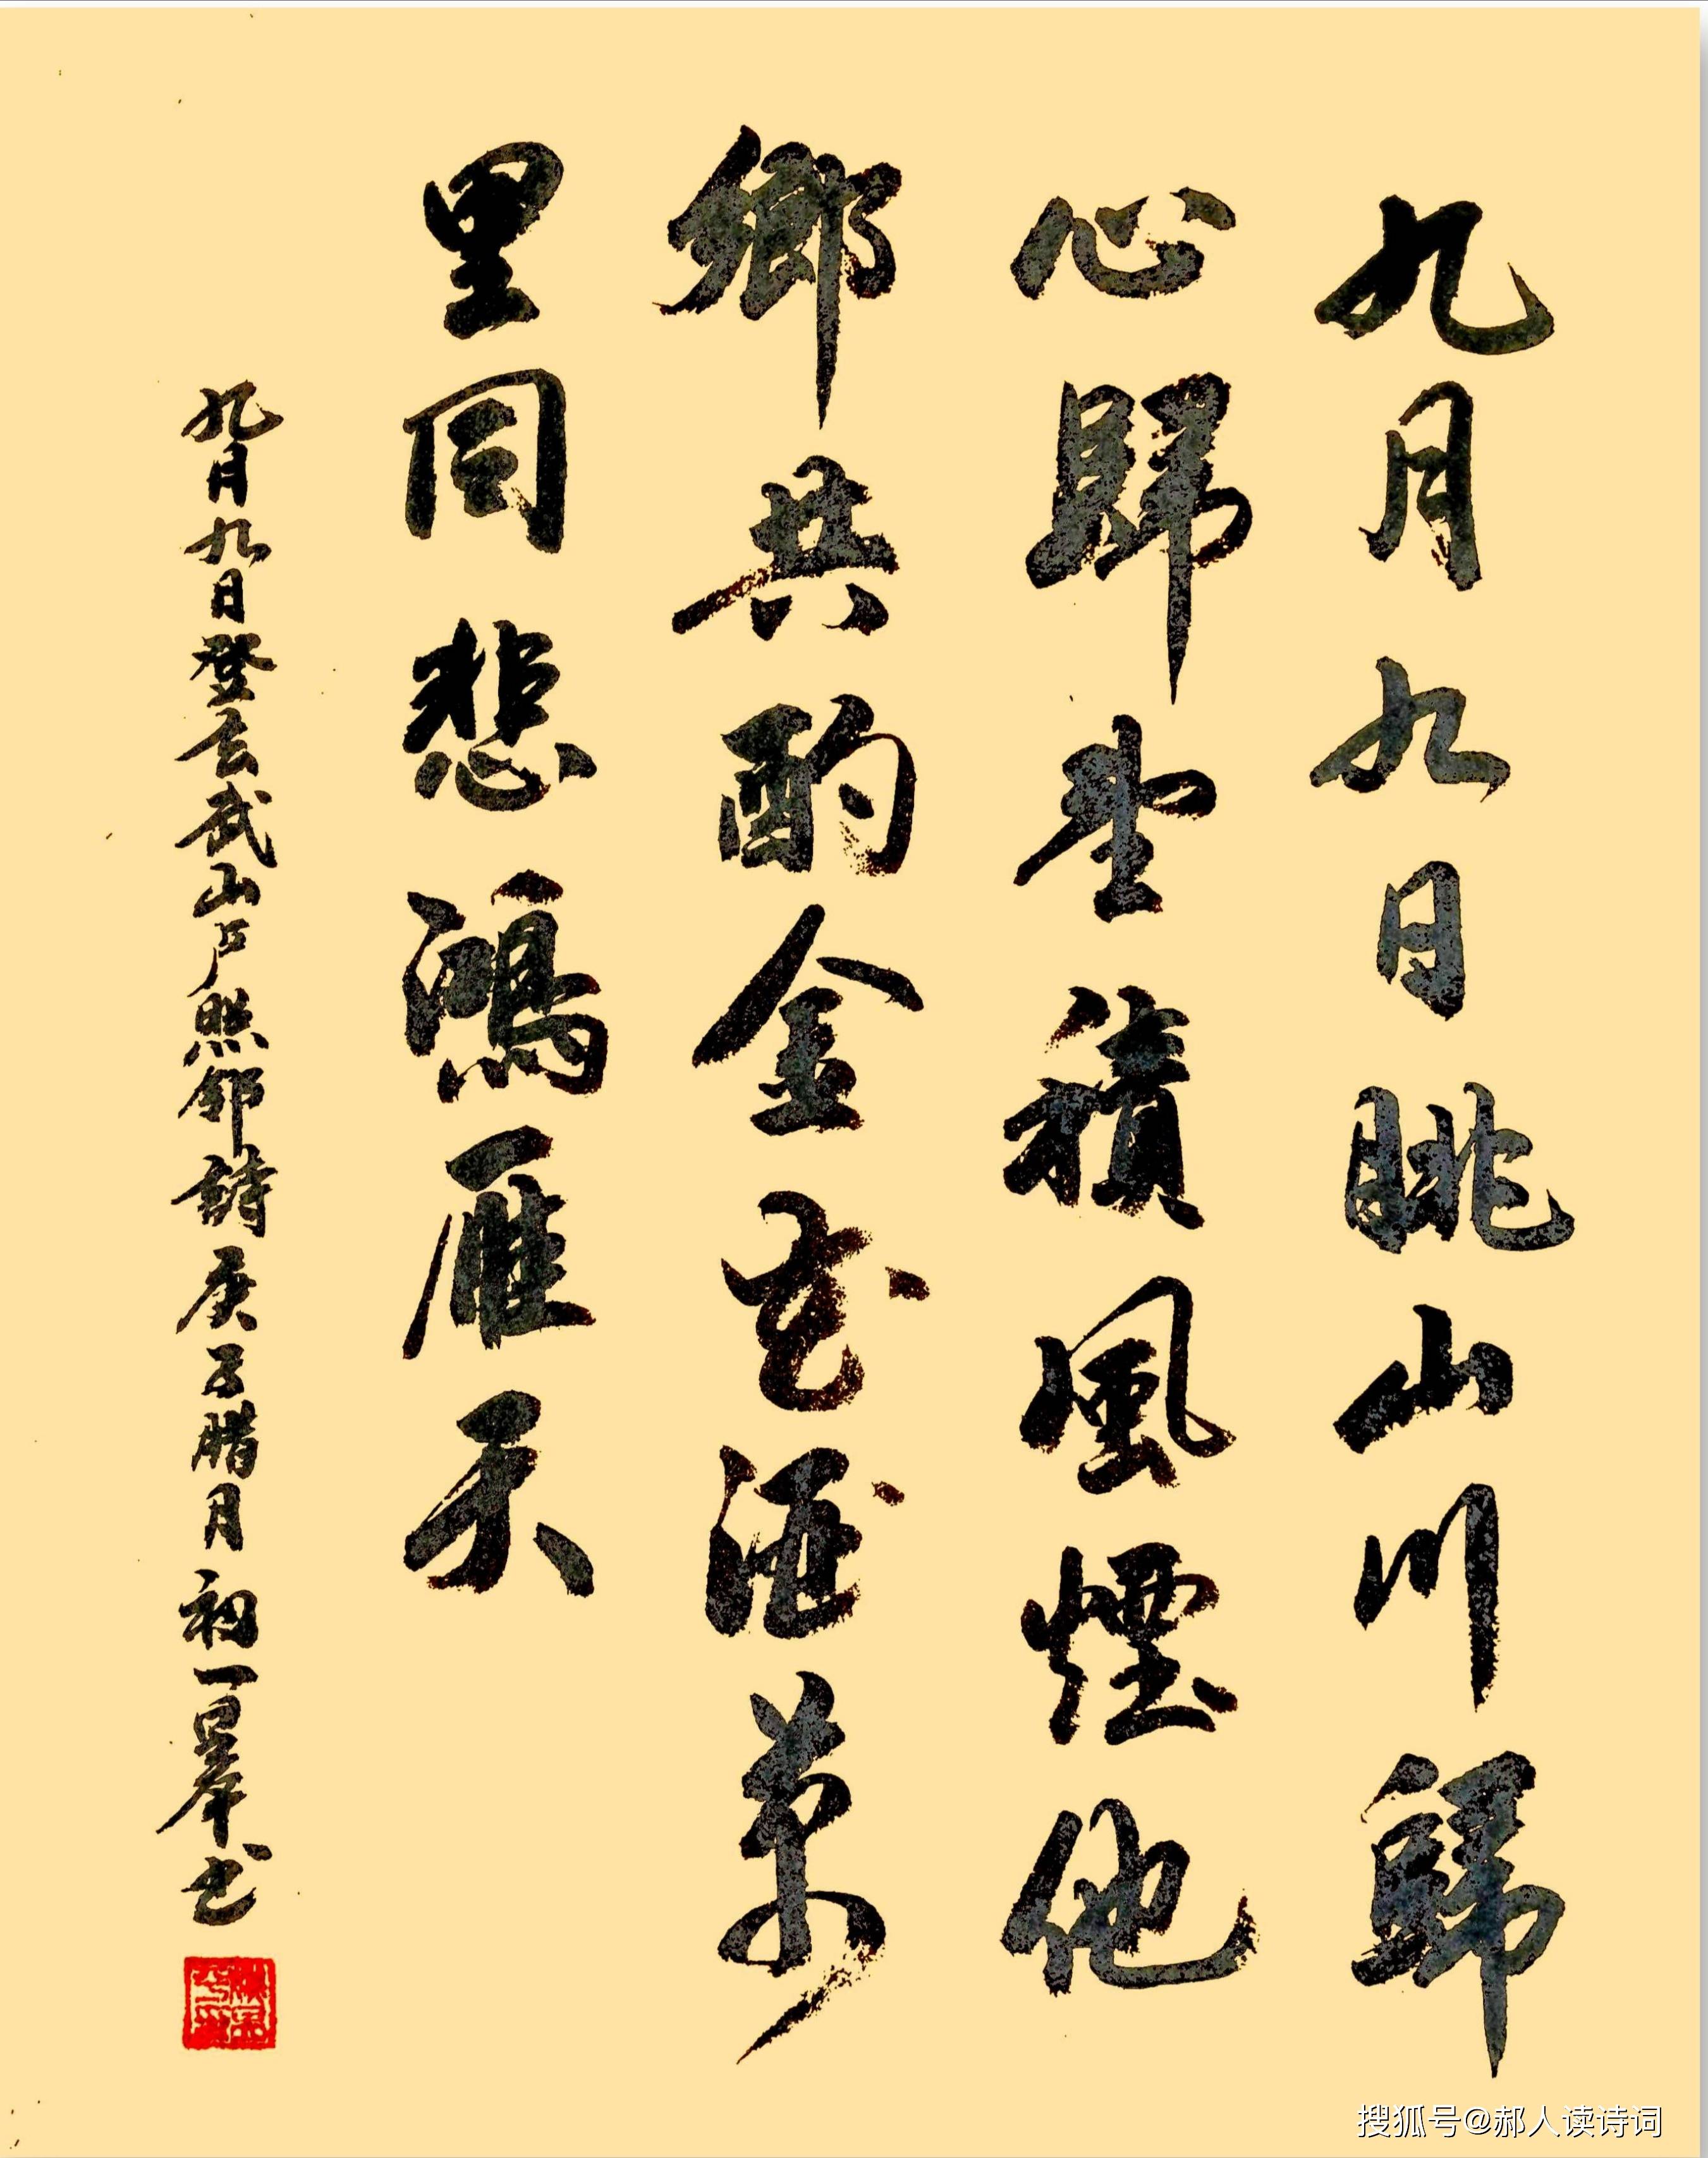 九月九日眺山川歸
心歸望積風煙他
鄉共酌金花酒萬
里同悲鴻雁天
九月九日登玄武山卢照邻詩庚子腊月初一书
搜狐号@郝人读诗词